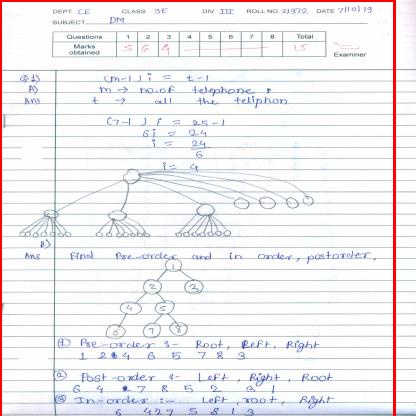 DEPT. CE CLASS SE DIV III ROLL NO. 21372 DATE 7/10/19
SUBJECT DM
Questions 1 2 3 4 5 6 7 8 Total
Marks obtained 5 6 4 15
Examiner
Q.1) (m-1) i = t-1
A) m → no.of telephone
Ans t → all the teliphon
(7-1) i = 25-1
6i = 24
i = 24
6
i = 4
B)
Ans Final Pre-order and in order, postorder,
1
2 3
4 5
6 7 8
① Pre-order :- Root, Left, Right
1 2 4 6 5 7 8 3
② Post-order :- Left, Right, Root
6 4 7 8 5 2 3 1
③ In-order :- Left, root, Right
6 4 2 7 5 8 1 3